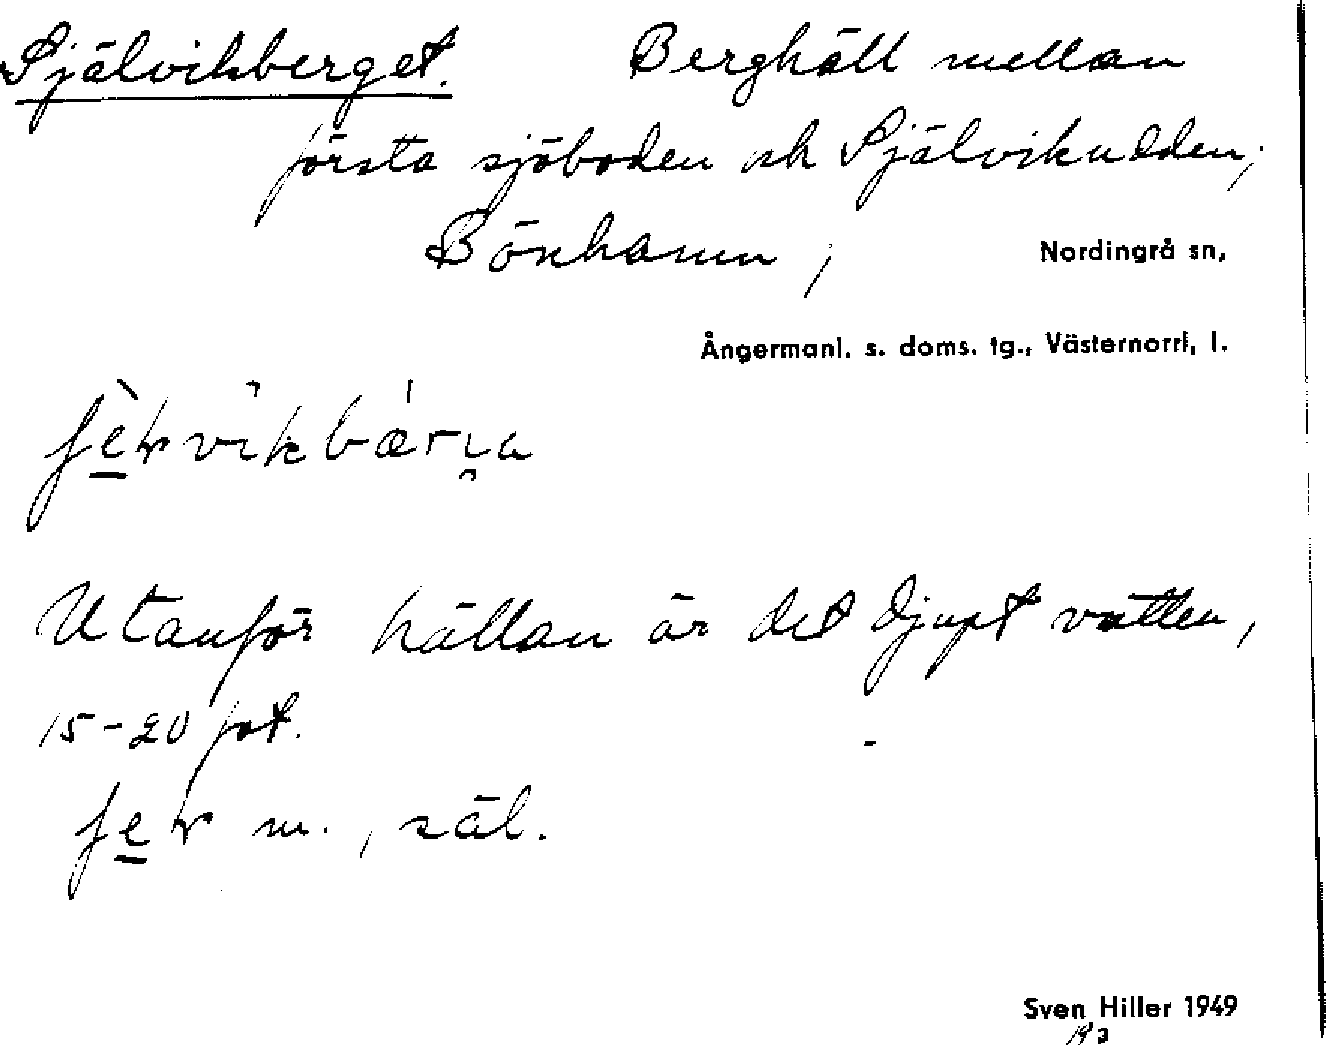 Självikberget. Berghäll mellan
första sjöboden och Självikudden,
Bönhamn, Nordingrå sn,
Ångermanl. s. doms. tg., Västernorrl. l.
Utanför hällan är det djupt vatten,
15-20 fot.
m., säl.
Sven Hiller 1949